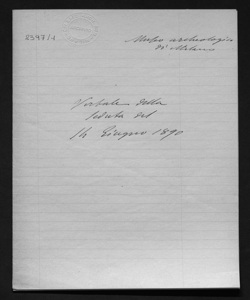 2347/1
Museo archeologico
di Milano
Verbale della
seduta del
14 Giugno 1890